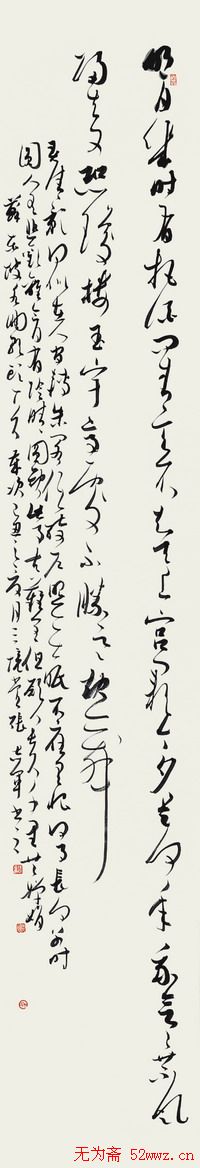 明月几时有把酒问青天不知天上宫阙今夕是何年我欲乘风
归去又恐琼楼玉宇高处不胜寒起舞
弄清影何似在人间转朱阁低绮户照无眠不应有恨何事长向别时
圆人有悲欢离合月有阴晴圆缺此事古难全但愿人长久千里共婵娟
苏东坡水调歌头
无为斋 52wwz.cn